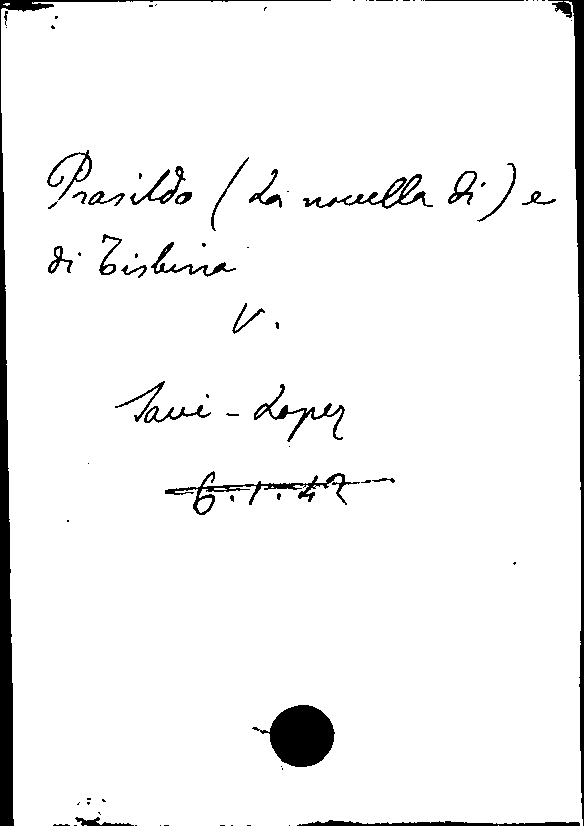 Prasildo (La novella di) e
di Tisbina
V.
Savi-Lopez
6.1.42